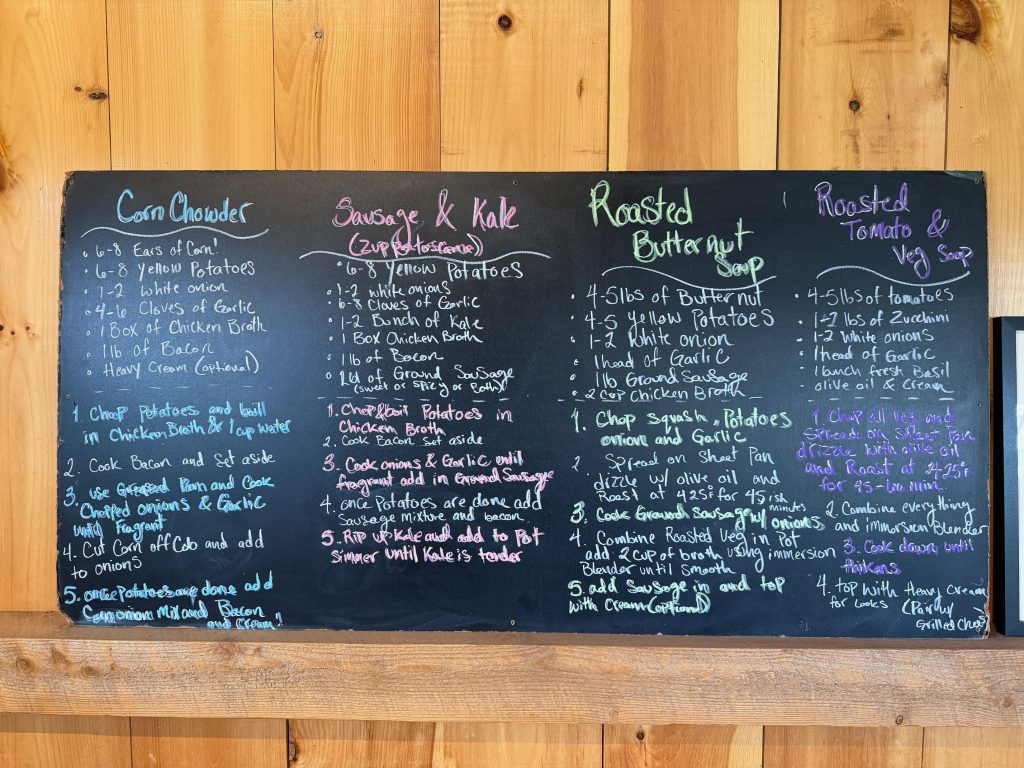 Corn Chowder
6-8 Ears of Corn!
6-8 Yellow Potatoes
1-2 White onion
4-6 Cloves of Garlic
1 Box of Chicken Broth
1 lb of Bacon
Heavy Cream (optional)
1. Chop potatoes and boil
in Chicken Broth & 1 cup water
2. Cook Bacon and Set aside
3. use Greased Pan and Cook
Chopped onions & Garlic
until Fragrant
4. Cut Corn off Cob and add
to onions
5. once Potatoes are done add
Corn onion Mix and Bacon
and Cream!
Sausage & Kale
(Zuppa
6-8 Yellow Potatoes
1-2 white onions
6-8 Cloves of Garlic
1-2 Bunch of Kale
1 Box Chicken Broth
1 lb of Bacon
of Ground Sausage
(sweet or spicy or Both)
1. Chop & boil Potatoes in
Chicken Broth
2. Cook Bacon Set aside
3. Cook onions & Garlic until
fragrant add in Ground Sausage
4. once Potatoes are done add
Sausage mixture and bacon.
5. Rip up Kale and add to Pot
Simmer until Kale is tender
Roasted
Butternut
Soup
4-5 lbs of Butternut
4-5 Yellow Potatoes
1-2 White onion
1 head of Garlic
1 lb Ground Sausage
2 cup Chicken Broth
1. Chop squash, Potatoes
onion and Garlic
2 Spread on Sheet Pan
dizzle w/ olive oil and
Roast at 425°F for 45 ish
minutes
3. Cook Ground Sausage w/ onions
4. Combine Roasted Veg in Pot
add 2 cup of broth using immersion
Blender until Smooth
5. add Sausage in and top
with Cream (optional)
Roasted
Tomato &
Veg Soup
4-5 lbs of tomatoes
1-2 lbs of Zucchini
1-2 White onions
1 head of Garlic
1 bunch fresh Basil
olive oil & Cream
1. Chop all veg and
Spread on Sheet Pan
drizzle with olive oil
and Roast at 425°F
for 45-60 min
2. Combine everything
and immersion Blender
3. Cook down until
thikens
4. top with Heavy Cream
for looks (Pair w/
Grilled Chees